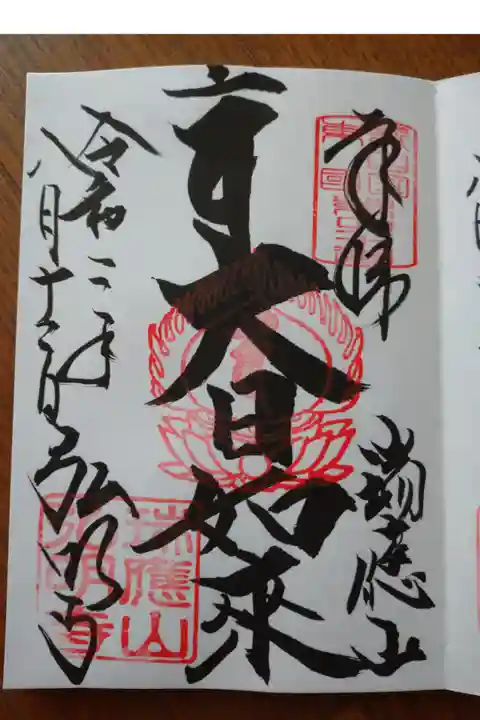 奉拝
瑞應山
大日如来
令和二年
八月十
弘明寺
瑞應山
弘明寺